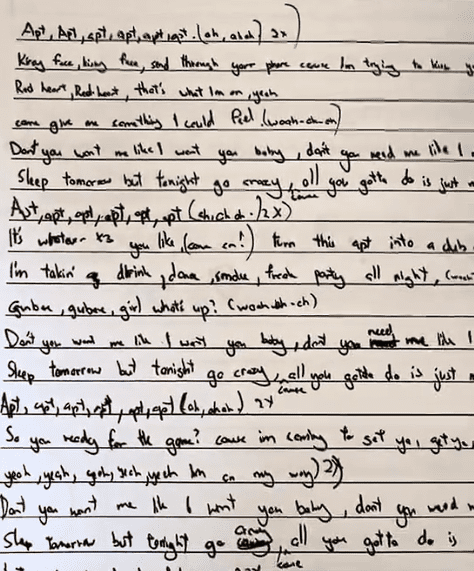 Apt, Apt, apt, apt, apt, apt. (ah, ahah) 2x)
Kissy face, kissy face, send through your phone cause I'm trying to kiss
Red heart, Red heart, that's what I'm on, yeah
come give me something I could feel. (woah-oh-oh)
Don't you want me like I want you baby, don't you need me like I
Sleep tomorrow but tonight go crazy, cause all you gotta do is just
Apt, apt, apt, apt, apt, apt 2x)
It's whatever x3 you like, (come on!) turn this apt into a club
I'm takin' drink, dance, smoke, freak party all night,
girl what's up? (woah-oh-oh)
Don't you want me like I want you baby, don't you need me like I
Sleep tomorrow but tonight go crazy, cause all you gotta do is just
Apt, apt, apt, apt, apt, apt (ah, ahah) 2x
So you ready for the game? cause im coming to get ya, get
yeah, yeah, yeah, yeah, yeah Im on my way) 2x)
Don't you want me like I want you baby, don't you need
Sleep tomorrow but tonight go crazy, cause all you gotta do is